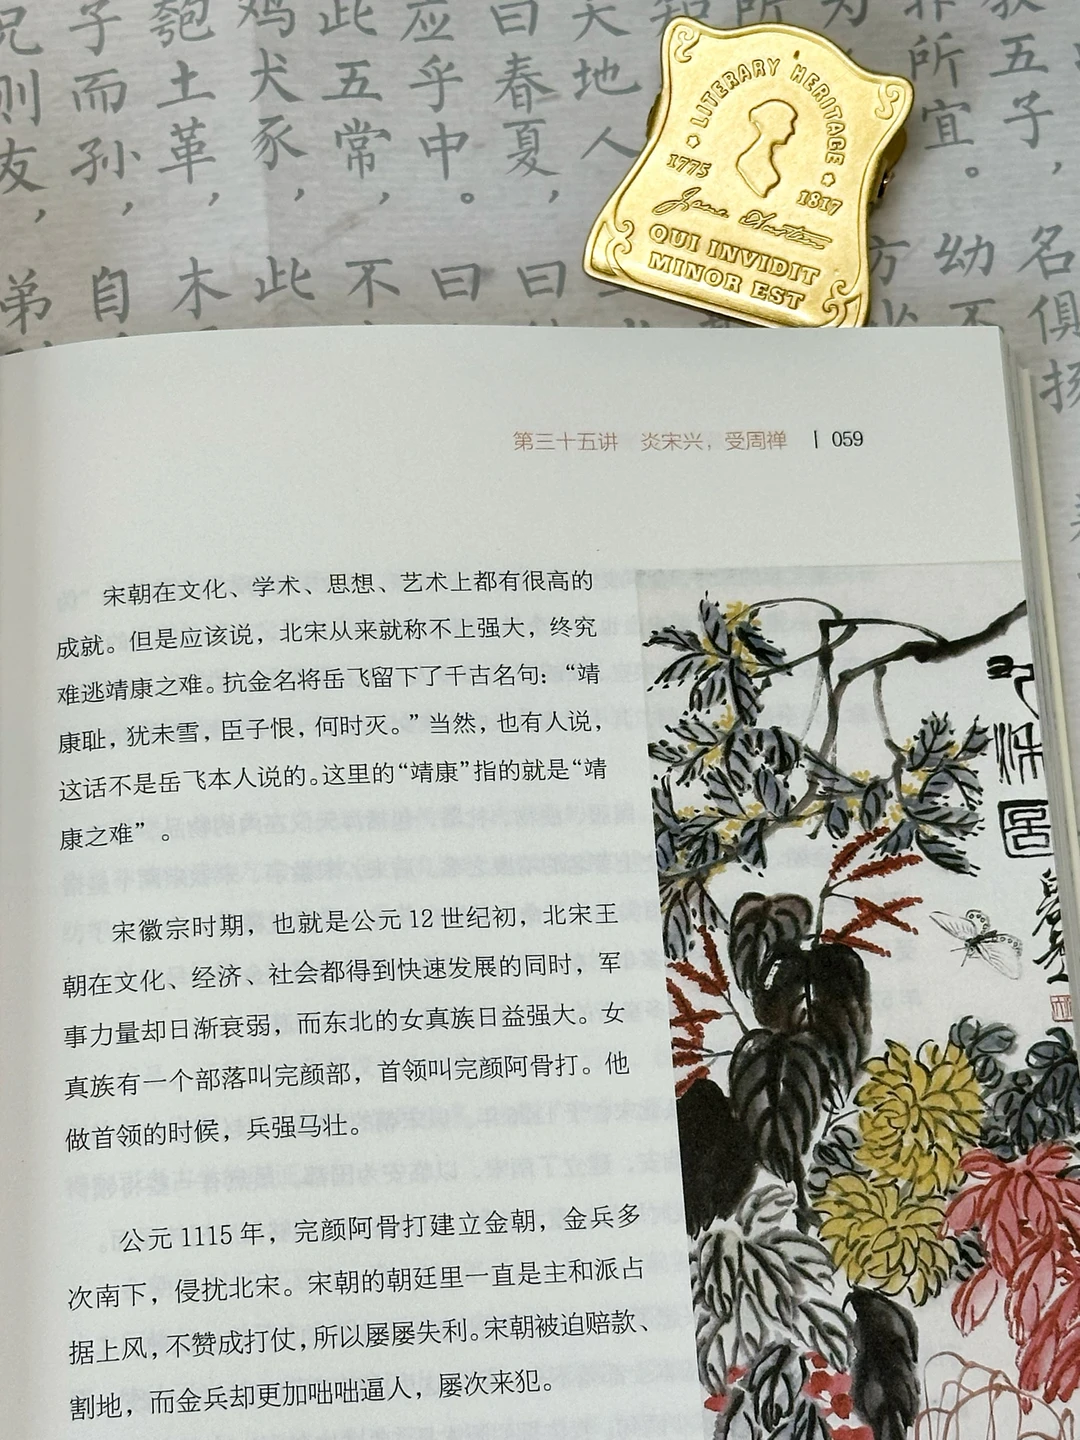 教五子，
非所宜。
为
所
知
天地人
曰春夏，
应乎中。
此五常，
鸡犬豕，
匏土革，
子而孙，
兄则友，
名俱扬
幼不
方
曰
曰
不
此
木
自
弟
LITERARY HERITAGE
1775
1817
Jane Austen
QUI INVIDIT
MINOR EST
第三十五讲 炎宋兴，受周禅 | 059
宋朝在文化、学术、思想、艺术上都有很高的
成就。但是应该说，北宋从来就称不上强大，终究
难逃靖康之难。抗金名将岳飞留下了千古名句：“靖
康耻，犹未雪，臣子恨，何时灭。”当然，也有人说，
这话不是岳飞本人说的。这里的“靖康”指的就是“靖
康之难”。
宋徽宗时期，也就是公元12世纪初，北宋王
朝在文化、经济、社会都得到快速发展的同时，军
事力量却日渐衰弱，而东北的女真族日益强大。女
真族有一个部落叫完颜部，首领叫完颜阿骨打。他
做首领的时候，兵强马壮。
公元1115年，完颜阿骨打建立金朝，金兵多
次南下，侵扰北宋。宋朝的朝廷里一直是主和派占
据上风，不赞成打仗，所以屡屡失利。宋朝被迫赔款、
割地，而金兵却更加咄咄逼人，屡次来犯。
九秋图